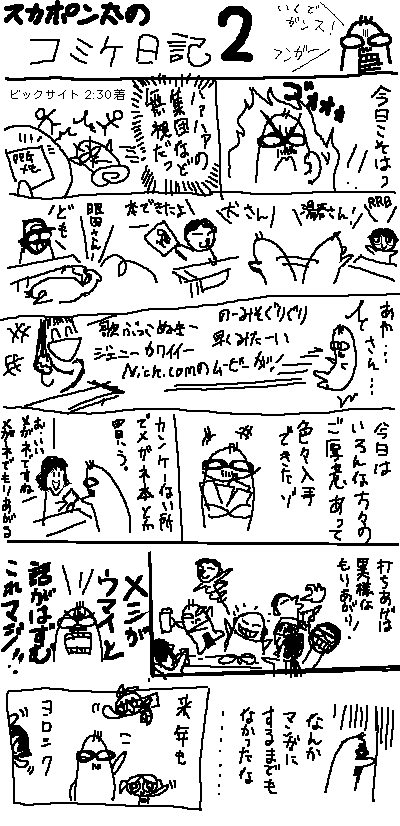 スカポン太の
コミケ日記 2
いくで
ガンス!
フンガー
今日こそはっ
ゴオオオ
ハァハァの
集団など
無視だっ
ビックサイト 2:30着
RRB
湯呑さん!
犬さん!
本できたよ!
眼田さん
ども
あや…
さん…
のーみそぐりぐり
早くみたーい
歌ぶっこぬきー
ジェニーカワイイー
Nick.comのムービーが!
今日は
いろんな方々の
ご厚意あって
色々入手
できたゾ
カンケーない所
でメガネ本とか
買う。
おいしい
メガネですね!
メガネでもりあがる
打ちあげは
異様な
もりあがり!
メシが
ウマイと
話がはずむ
これマジ!!
なんか
マンガに
するまでも
なかったな
……
来年も
ヨロシク